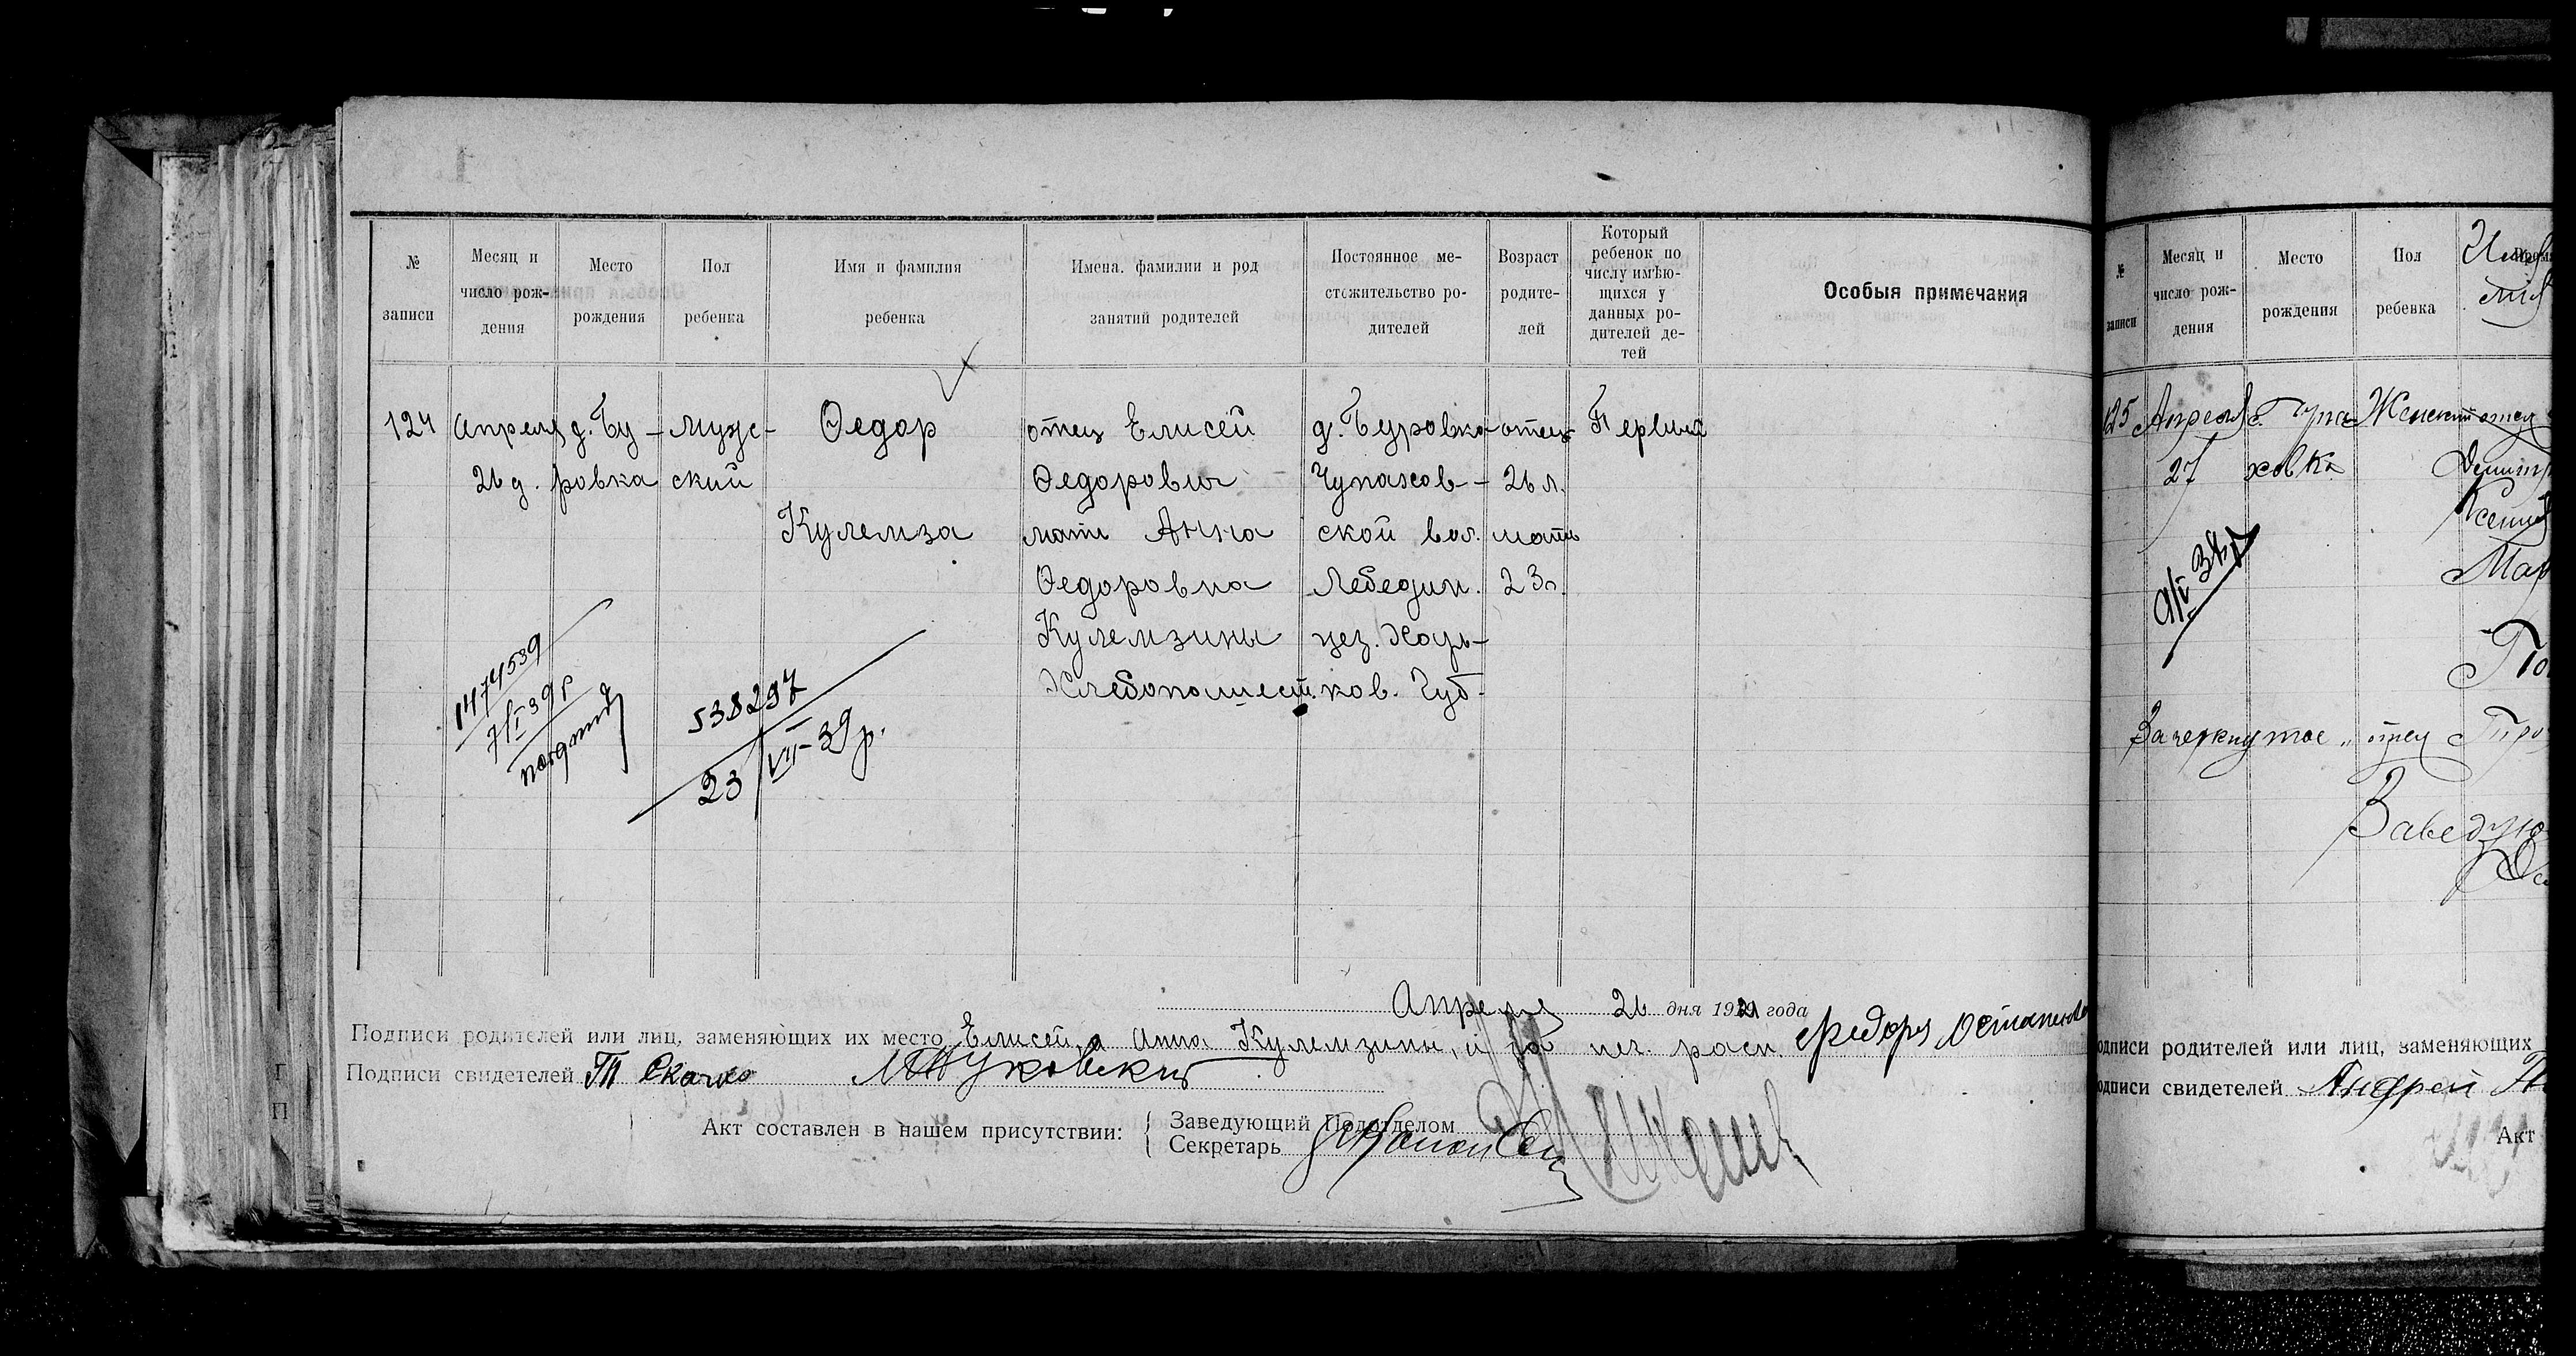 № записи
Месяц и число рождения
Место рождения
Пол ребенка
Имя и фамилия ребенка
Имена, фамилии и род занятий родителей
Постоянное местожительство родителей
Возраст родителей
Который ребенок по числу имѣющихся у данных родителей детей
Особыя примечания
124
Апреля
26 д.
д. Бу-
ровка
мужс-
ский
Ѳедор
Кулемза
отец Елисей
Ѳедорович
мать Анна
Ѳедоровна
Кулемзины
Хлебопашест.
д. Буровка
Чупахов-
ской вол.
Лебедин.
уез. Харь-
ков. Губ.
отец
26 л.
мать
23 л.
Первый
1474539
7/I 39 р
538297
23/VII-39 р.
Апреля 26 дня 1921 года
Подписи родителей или лиц, заменяющих их место Елисей, а Анна Кулемзины, и за нег. расп. Федоръ
Подписи свидетелей
Акт составлен в нашем присутствии:
Заведующий Подотделом
Секретарь
№ записи
Месяц и число рождения
Место рождения
Пол ребенка
125
Апреля
27
ховка
Женский
отец
Зачеркнутое „отец
Заведую
одписи родителей или лиц, заменяющих
одписи свидетелей Андрей
Акт